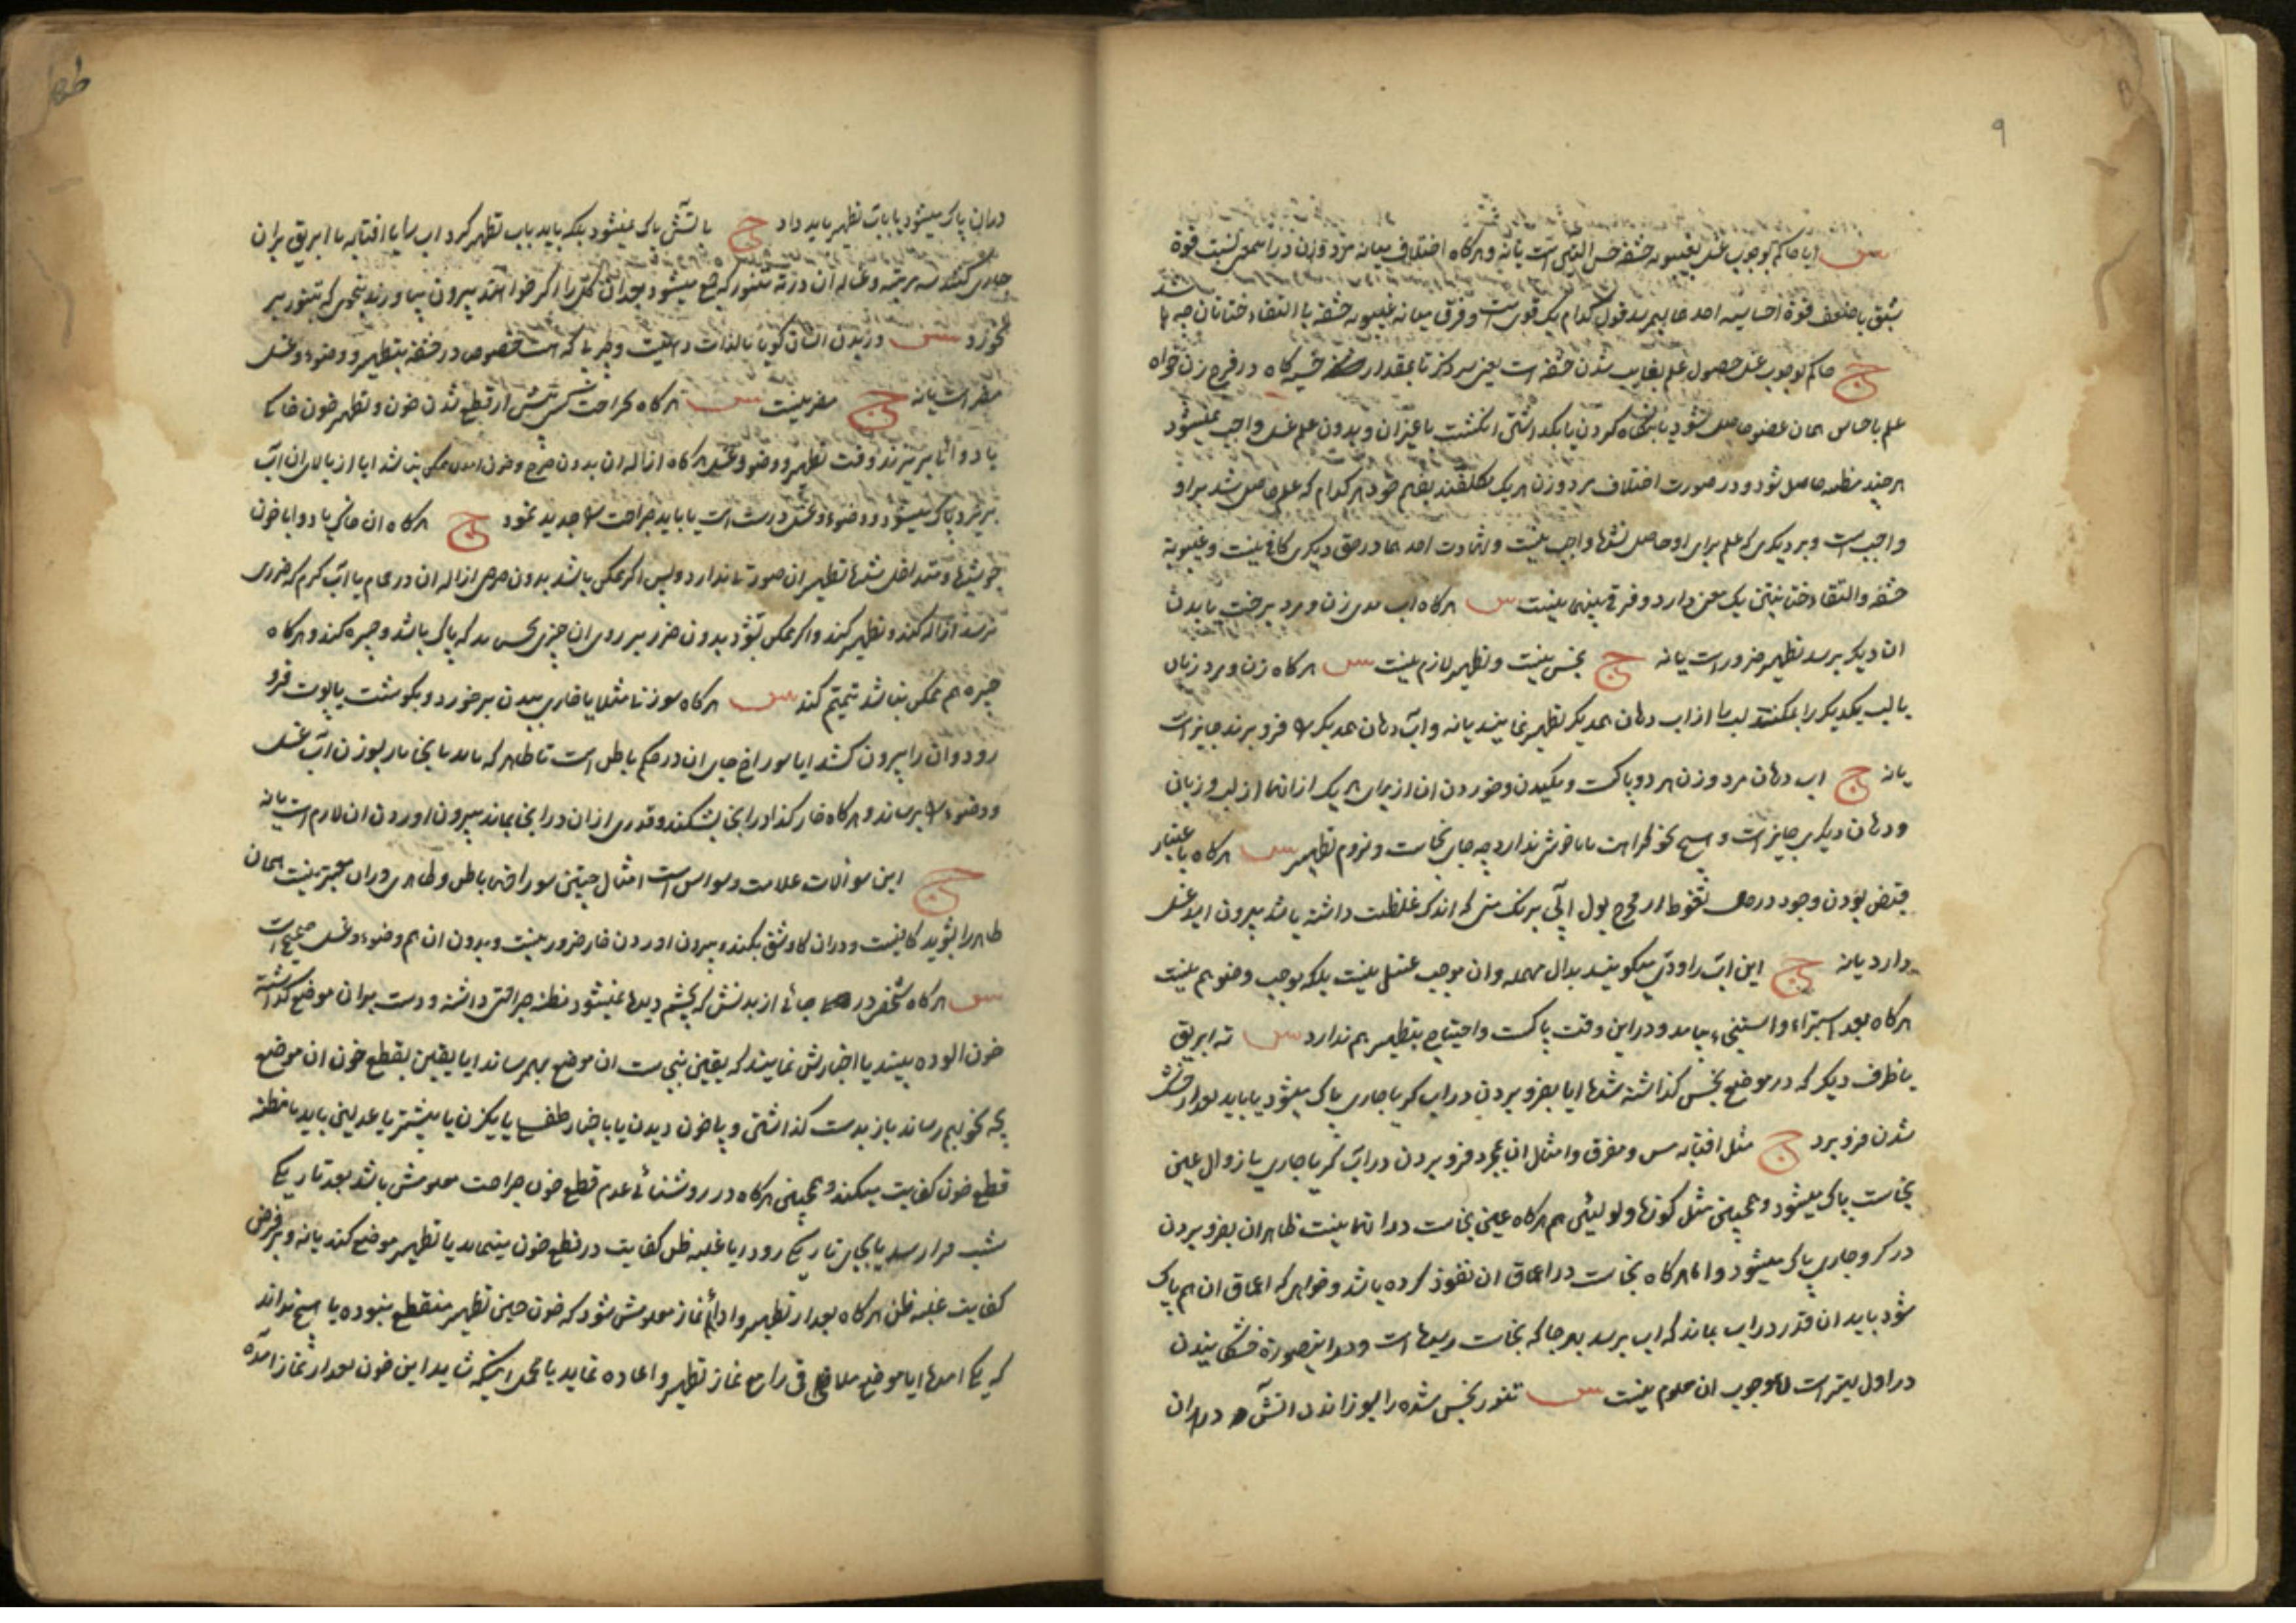 ۹
س ایا حاکم بوجوب غسل بغیبوبه حشفه حس التذاذی است یانه و هرکاه اختلاف میانه مرد و زن در این معنی نسبت قوة
شبق یا ضعف قوة احساسیه احدهما بهم رسد قول کدام یک قوی است و فرق میانه غیبوبه حشفه یا التقاء ختانان چه
ج حاکم بوجوب غسل حصول علم بغایب شدن حشفه است یعنی سر ذکر تا بمقدار ختنه کاه در فرج زن خواه
علم باحساس همان عضو حاصل شود یا بنکاه کردن یا بکذاشتن انکشت یا غیر ان و بدون علم غسل واجب نمیشود
هر چند مظنه حاصل شود و در صورت اختلاف مرد و زن هر یک مکلفند بفهم خود هر کدام که علم حاصل شد بر او
واجب است و بر دیکری که علم برای او حاصل نشده واجب نیست و شهادت احدهما در حق دیکری کافی نیست و غیبوبة
حشفه و التقاء ختانین یک معنی دارد و فرقی بینهما نیست س هرکاه اب مدی زن و مرد برخت یا بدن
ان دیکر برسد تطهیر ضرور است یانه ج نجس نیست و تطهیر لازم نیست س هرکاه زن و مرد زبان
یا لب یکدیکر را بمکنند لب را از اب دهان همدیکر تطهیر نمایند یانه و اب دهان همدیکر را فرو برند جایز است
یانه ج اب دهان مرد و زن هر دو پاکست و مکیدن و خوردن ان از برای هر یک از انها از لب و زبان
و دهان دیکری جایز است و هیچ نحو کراهت یا ناخوشی ندارد چه جای نجاست و لزوم تطهیر س هرکاه باعتبار
قبض بودن وجود در حال تغوط از مخرج بول ابی برنک منی که اندک غلظت داشته باشد بیرون اید غسل
دارد یانه ج این اب را ودی میکویند بدال مهمله و ان موجب غسل نیست بلکه موجب وضو هم نیست
هرکاه بعد از استبراء و استنجاء بیاید و در این وقت پاکست و احتیاج بتطهیر هم ندارد س ته ابریق
یا ظرف دیکر که در موضع نجس کذاشته شده ایا بفرو بردن در اب کر یا جاری پاک میشود یا باید بعد از خشک
شدن فرو برد ج مثل افتابه مس و مفرق و امثال ان بمجرد فرو بردن در اب کر یا جاری با زوال عین
نجاست پاک میشود و همچنین مثل کوزه و لولئین هم هرکاه عین نجاست در انها نیست ظاهر ان بفرو بردن
در کر و جاری پاک میشود و اما هرکاه نجاست در اعماق ان نفوذ کرده باشد و خواهد که اعماق ان هم پاک
شود باید ان قدر در اب بماند که اب برسد بهر جا که نجاست رسیده است و در اینصورة خشکانیدن
در اول بهتر است اما وجوب ان معلوم نیست س تنور نجس شده را بسوزاندن اتش در ان
در ان پاک میشود یا باب تطهیر باید داد ج باتش پاک نمیشود بلکه باید باب تطهیر کرد اب را با افتابه یا ابریق بر ان
جاری کنند و غساله ان در ته تنور که جمع میشود بعد از ان کل را اکر خواهند بیرون بیاورند بنحوی که بتنور سر
نخورد س در بدن انسان کویا بالذات دهنیت و چربی که هست خصوص در حشفه بتطهیر و وضوء و غسل
مضر است یانه ج مضر نیست س هرکاه بجراحت کسی پیش از قطع شدن خون و تطهیر خون خاک
یا دوائی بریزند وقت تطهیر و وضو و غسل هرکاه ازاله ان بدون جرح و خون امدن ممکن نباشد ایا از بالای ان اب
بریزد پاک میشود و وضوء و غسل درست است یا باید جراحت را جدید نمود ج هرکاه ان خاک یا دوا با خون
جوشیده و متداخل شده تطهیر ان صورة ندارد و پس اکر ممکن باشد بدون حرجی ازاله ان در حمام یا اب کرم که ضرری
نرسد ازاله کند و تطهیر کند و اکر ممکن نشود بدون ضرر بر روی ان چیزی بچسباند که پاک باشد و جبیره کند و هرکاه
جبیره هم ممکن نباشد تیمم کند س هرکاه سوزنی مثلا یا خاری ببدن بر خورد و بکوشت یا پوست فرو
رود و ان را بیرون کشد ایا سوراخ جای ان در حکم باطن است تا ظاهر که باید با نجا سر سوزن اب غسل
و وضوء را برساند و هرکاه خار کذا در انجا بشکند و قدری از ان در انجا بماند بیرون اوردن ان لازم است یانه
ج این سوالات علامت وسواس است امثال چنین سوراخها باطن و ظاهری در ان معتبر نیست همان
ظاهر را بشوید کافیست و در ان کاوش نکند و بیرون اوردن خار ضرور نیست و بدون ان هم وضوء و غسل صحیح است
س هرکاه شخصی در جائی از بدنش که بچشم دیده نمیشود مظنه جراحتی داشته و دست بر ان موضع کذاشته
خون الوده بیند یا اخبارش نمایند که یقین بنجاست ان موضع بهم رساند ایا یقین بقطع خون ان موضع
بچه نحو بهم رساند باز بدست کذاشتن و پا خون دیدن یا باخبار طفل یا یکزن یا بیشتر یا عدلین باید یا مظنه
قطع خون کفایت میکند و همچنین هرکاه در روشنائی عدم قطع خون جراحت معلومش باشد بعد تاریکی
شب فرا رسد یا بجای تاریکی رود ایا غلبه ظن کفایت در قطع خون مینماید یا تطهیر موضع کند یانه و بر فرض
کفایت غلبه ظن هرکاه بعد از تطهیر و ادای نماز معلومش شود که خون حین تطهیر منقطع نبوده یا هیچ نداند
که کی امده ایا موضع ملاقی را مع نماز تطهیر و اعاده نماید یا محمل اینکه شاید این خون بعد از نماز امده